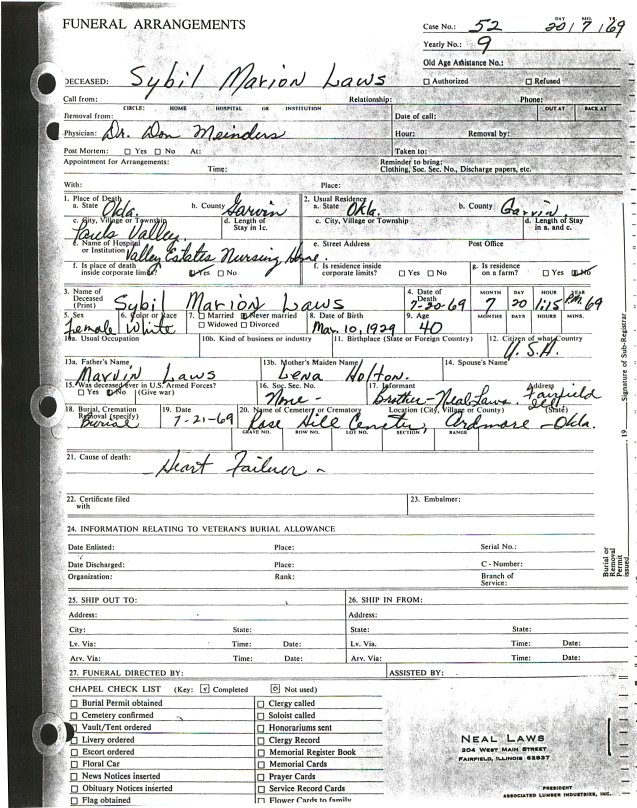 FUNERAL ARRANGEMENTS
Case No.: 52 DAY 20 MO. 7 YR. 69
Yearly No.: 9
Old Age Assistance No.:
DECEASED: Sybil Marion Laws ☐ Authorized ☐ Refused
Call from: Relationship: Phone:
CIRCLE: HOME HOSPITAL OR INSTITUTION OUT AT BACK AT
Removal from: Date of call:
Physician: Dr. Don Meinders Hour: Removal by:
Post Mortem: ☐ Yes ☐ No At: Taken to:
Appointment for Arrangements: Reminder to bring:
Time: Clothing, Soc. Sec. No., Discharge papers, etc.
With: Place:
1. Place of Death 2. Usual Residence
a. State Okla. b. County Garvin a. State Okla. b. County Garvin
c. City, Village or Township d. Length of Stay in 1c. c. City, Village or Township d. Length of Stay in a. and c.
Pauls Valley
e. Name of Hospital or Institution Valley Estates Nursing Home. e. Street Address Post Office
f. Is place of death inside corporate limits? ☑ Yes ☐ No f. Is residence inside corporate limits? ☐ Yes ☐ No g. Is residence on a farm? ☐ Yes ☑ No
3. Name of Deceased (Print) Sybil Marion Laws 4. Date of Death 7-20-69 MONTH 7 DAY 20 HOUR 1:15 P.M. YEAR 69
5. Sex Female 6. Color or Race White 7. ☐ Married ☑ Never married ☐ Widowed ☐ Divorced 8. Date of Birth Mar. 10, 1929 9. Age 40 MONTHS DAYS HOURS MINS.
10a. Usual Occupation 10b. Kind of business or industry 11. Birthplace (State or Foreign Country) 12. Citizen of what Country U.S.A.
13a. Father's Name Marvin Laws 13b. Mother's Maiden Name Lena Holton. 14. Spouse's Name
15. Was deceased ever in U.S. Armed Forces? ☐ Yes ☑ No (Give war) 16. Soc. Sec. No. None - 17. Informant brother-Neal Laws. Address Fairfield Ill
18. Burial, Cremation Removal (specify) Burial 19. Date 7-21-69 20. Name of Cemetery or Crematory Location (City, Village or County) (State) Rose Hill Cemetery, Ardmore - Okla.
GRAVE NO. ROW NO. LOT NO. SECTION RANGE
21. Cause of death:
Heart Failuer -
22. Certificate filed with 23. Embalmer:
24. INFORMATION RELATING TO VETERAN'S BURIAL ALLOWANCE
Date Enlisted: Place: Serial No.:
Date Discharged: Place: C - Number:
Organization: Rank: Branch of Service:
25. SHIP OUT TO: 26. SHIP IN FROM:
Address: Address:
City: State: State: State:
Lv. Via: Time: Date: Lv. Via. Time: Date:
Arv. Via: Time: Date: Arv. Via: Time: Date:
27. FUNERAL DIRECTED BY: ASSISTED BY:
CHAPEL CHECK LIST (Key: ☑ Completed ☐ Not used)
☐ Burial Permit obtained ☐ Clergy called
☐ Cemetery confirmed ☐ Soloist called
☐ Vault/Tent ordered ☐ Honorariums sent
☐ Livery ordered ☐ Clergy Record
☐ Escort ordered ☐ Memorial Register Book
☐ Floral Car ☐ Memorial Cards
☐ News Notices inserted ☐ Prayer Cards
☐ Obituary Notices inserted ☐ Service Record Cards
☐ Flag obtained ☐ Flower Cards to family
NEAL LAWS
204 WEST MAIN STREET
FAIRFIELD, ILLINOIS 62837
PRESIDENT
ASSOCIATED LUMBER INDUSTRIES, INC.
Burial or Removal Permit issued , 19 Signature of Sub-Registrar